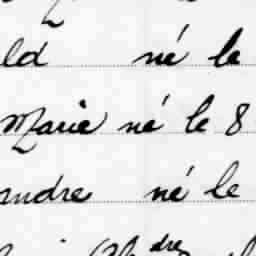 ld né le
Marie né le 8
andre né le
dre